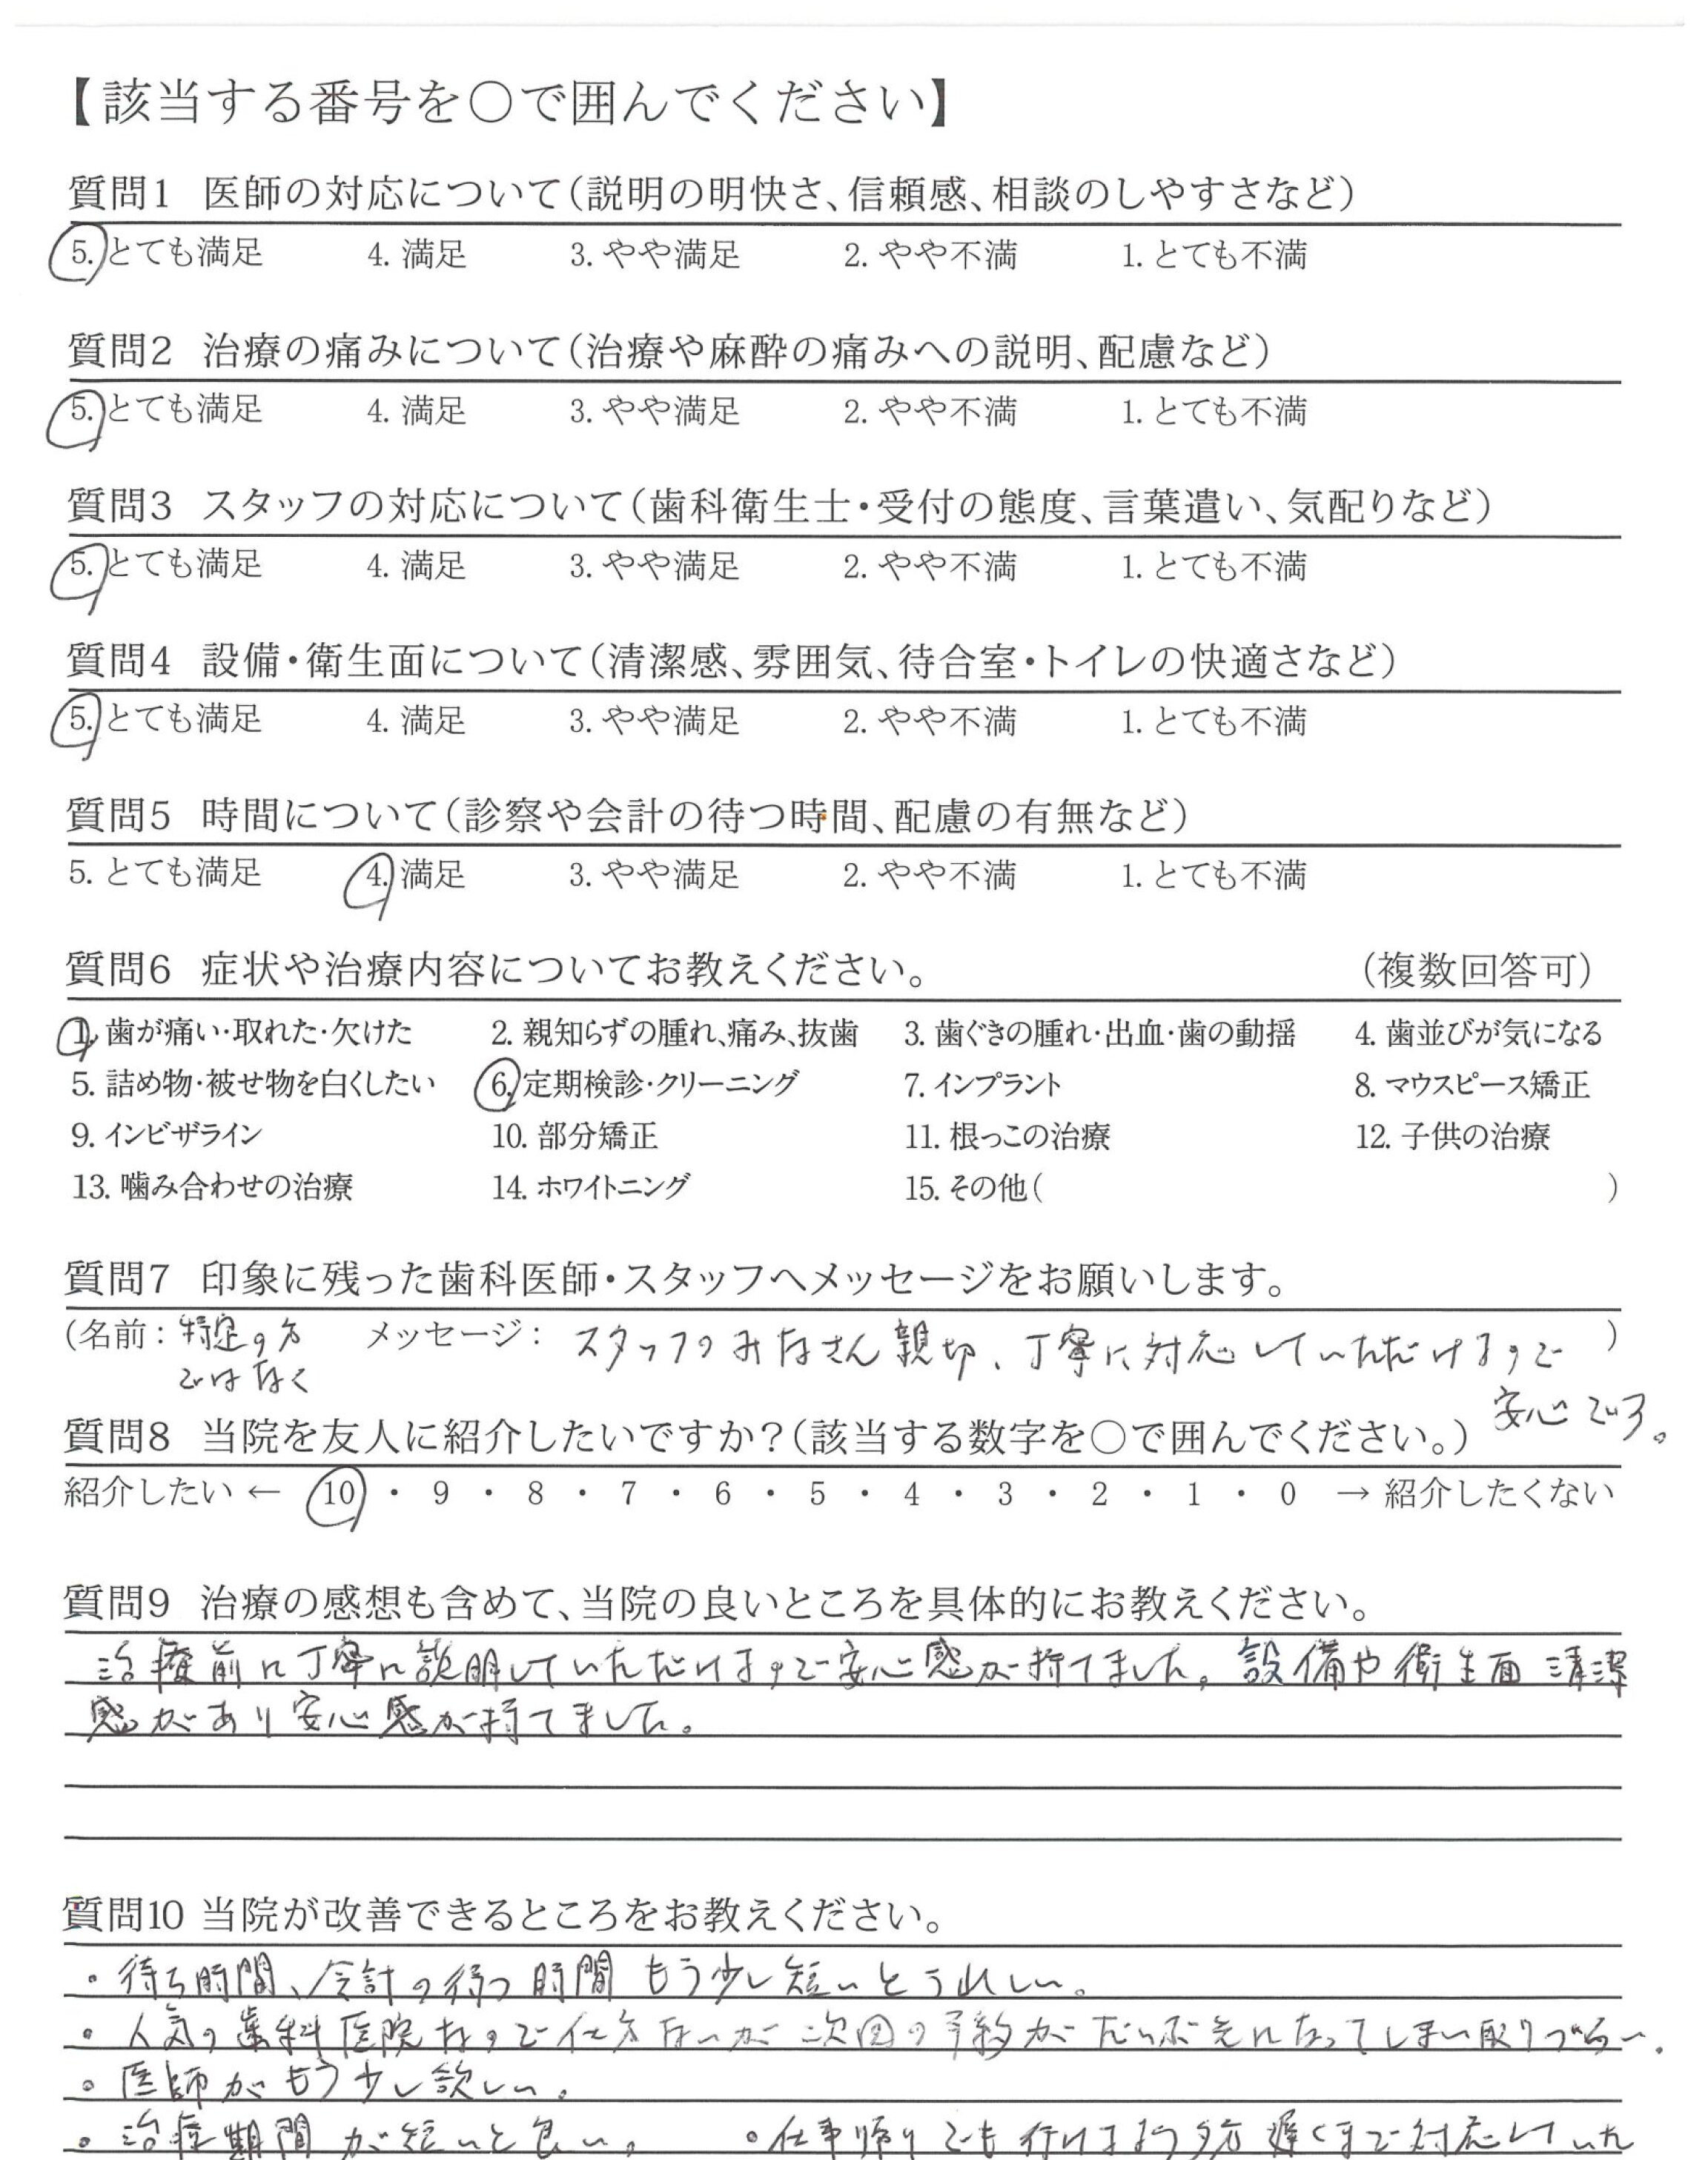 【該当する番号を〇で囲んでください】
質問1 医師の対応について(説明の明快さ、信頼感、相談のしやすさなど)
5. とても満足 4. 満足 3. やや満足 2. やや不満 1. とても不満
質問2 治療の痛みについて(治療や麻酔の痛みへの説明、配慮など)
5. とても満足 4. 満足 3. やや満足 2. やや不満 1. とても不満
質問3 スタッフの対応について(歯科衛生士・受付の態度、言葉遣い、気配りなど)
5. とても満足 4. 満足 3. やや満足 2. やや不満 1. とても不満
質問4 設備・衛生面について(清潔感、雰囲気、待合室・トイレの快適さなど)
5. とても満足 4. 満足 3. やや満足 2. やや不満 1. とても不満
質問5 時間について(診察や会計の待つ時間、配慮の有無など)
5. とても満足 4. 満足 3. やや満足 2. やや不満 1. とても不満
質問6 症状や治療内容についてお教えください。 (複数回答可)
1. 歯が痛い・取れた・欠けた 2. 親知らずの腫れ、痛み、抜歯 3. 歯ぐきの腫れ・出血・歯の動揺 4. 歯並びが気になる
5. 詰め物・被せ物を白くしたい 6. 定期検診・クリーニング 7. インプラント 8. マウスピース矯正
9. インビザライン 10. 部分矯正 11. 根っこの治療 12. 子供の治療
13. 噛み合わせの治療 14. ホワイトニング 15. その他( )
質問7 印象に残った歯科医師・スタッフへメッセージをお願いします。
(名前: 特定の方 メッセージ: スタッフのみなさん親切、丁寧に対応していただけるので )
ではなく
安心です。
質問8 当院を友人に紹介したいですか?(該当する数字を〇で囲んでください。)
紹介したい ← 10 ・ 9 ・ 8 ・ 7 ・ 6 ・ 5 ・ 4 ・ 3 ・ 2 ・ 1 ・ 0 → 紹介したくない
質問9 治療の感想も含めて、当院の良いところを具体的にお教えください。
治療前に丁寧に説明していただけますので安心感が持てました。設備や衛生面 清潔
感があり安心感が持てました。
質問10 当院が改善できるところをお教えください。
・待ち時間、会計の待つ時間 もう少し短いとうれしい。
・人気の歯科医院なので仕方ないが次回の予約がだいぶ先になってしまい取りづらい。
・医師がもう少し欲しい。
・治療期間が短いと良い。 ・仕事帰りでも行けるよう夕方遅くまで対応していた